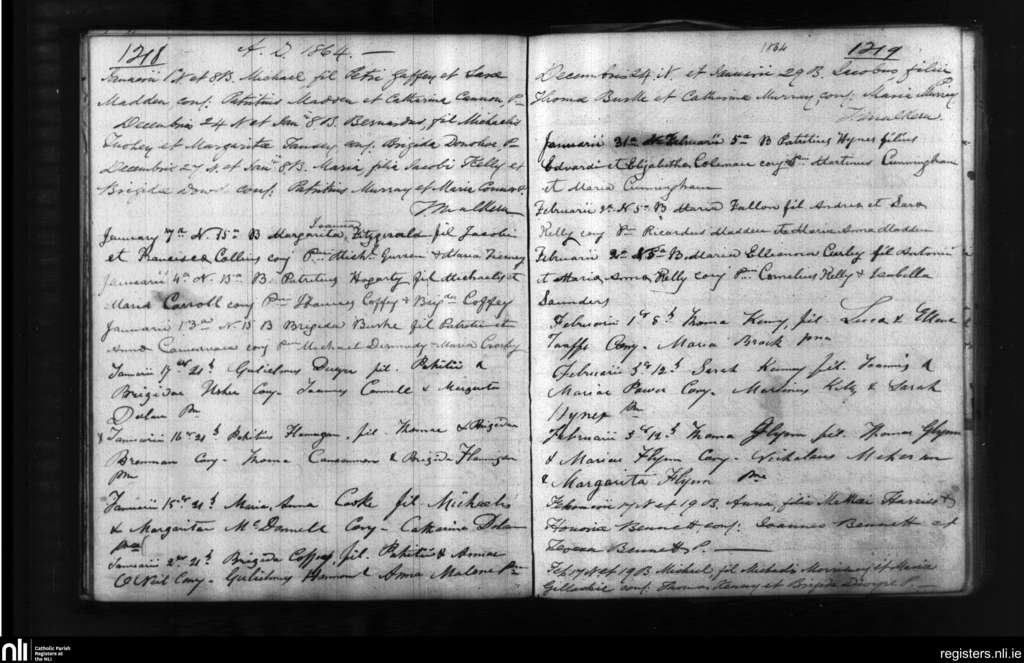 1218 A. D. 1864. —
Januarii 1 N et 8 B. Michael fil Petri Gaffey et Sara
Madden, conj. Patritius Madden et Catharina Cannon, P
Decembris 24 N et Jan 8 B. Bernardus, fil Michaelis
Tuohey et Margarita conj. Brigida Donohoe, P
Decembris 27 N. et Jan 8 B. Maria filia Jacobi Kelly et
Brigida conj. Patritius Murray et Maria
January 7a N. 15a B Margarita Joanna Fitzgerald fil Jacobi
et Francisca Collins conj Pm Mich. Curran & Maria Tierney
Januarii 4a N. 15a B. Patritius Hogarty fil Michaelis et
Maria Carroll conj Pm Joannes Coffey & Brigda Coffey
Januarii 13a N. 15 B Brigida Burke fil Patritii et
Anna conj Pm Michael Dermody & Maria Crosby
Januarii 17 21 Gulielmus Dwyer fil. Patritii &
Brigidae Usher Conj. Joannes & Margarita
Dolan Pm
Januarii 16 21 Patritius Flanagan, fil. Thomae & Brigidae
Brennan Conj. Thoma Concannon & Brigida Flanagan
Pm
Januarii 15 21 Maria Anna Cooke fil. Michaelis
& Margaritae McDonnell Conj. Catharina Dolan
Januarii 2 21 Brigida Coffey, fil. Patritii & Annae
O'Neil Conj. Gulielmus & Anna Malone Pm
1864 1219
Decembris 24 N. et Januarii 29 B. Jacobus filius
Thoma Burke et Catharina Murray, conj. Maria Murray P
Januarii 31a N. Februarii 5a B Patritius Hynes filius
Edvardi et Elizabetha Coleman conj Pm Martinus Cunningham
et Maria Cunningham
Februarii N. 5a B Maria Fallon fil Andrea et Sara
Kelly conj Pm Ricardus Madden et Maria Anna Madden
Februarii 2a N 5a B. Maria Elleanora Curley fil Antonii
et Maria Anna Kelly conj Pm Cornelius Kelly & Isabella
Saunders
Februarii 1 5 Thoma Kenny, fil. Luca & Ellena
Taaffe Conj. Maria Brock
Februarii 3 12 Sarah Kenny fil. Joannis &
Mariae Power Conj. Martinus Kelly & Sarah
Hynes Pm
Februarii 3 12 Thoma Glynn fil. Thomae Glynn
& Mariae Flynn Conj. Nicholaus
& Margarita Flynn Pm
Februarii 17 N et 19 B. Anna, filia &
Honoria Bennett conj. Joannes Bennett et
Bennett P. —
Feb 17 N et 19 B Michael, fil Michaelis et Maria
conj. Thomas Kenny et Brigida P. —
nli Catholic Parish
Registers at
the NLI
registers.nli.ie